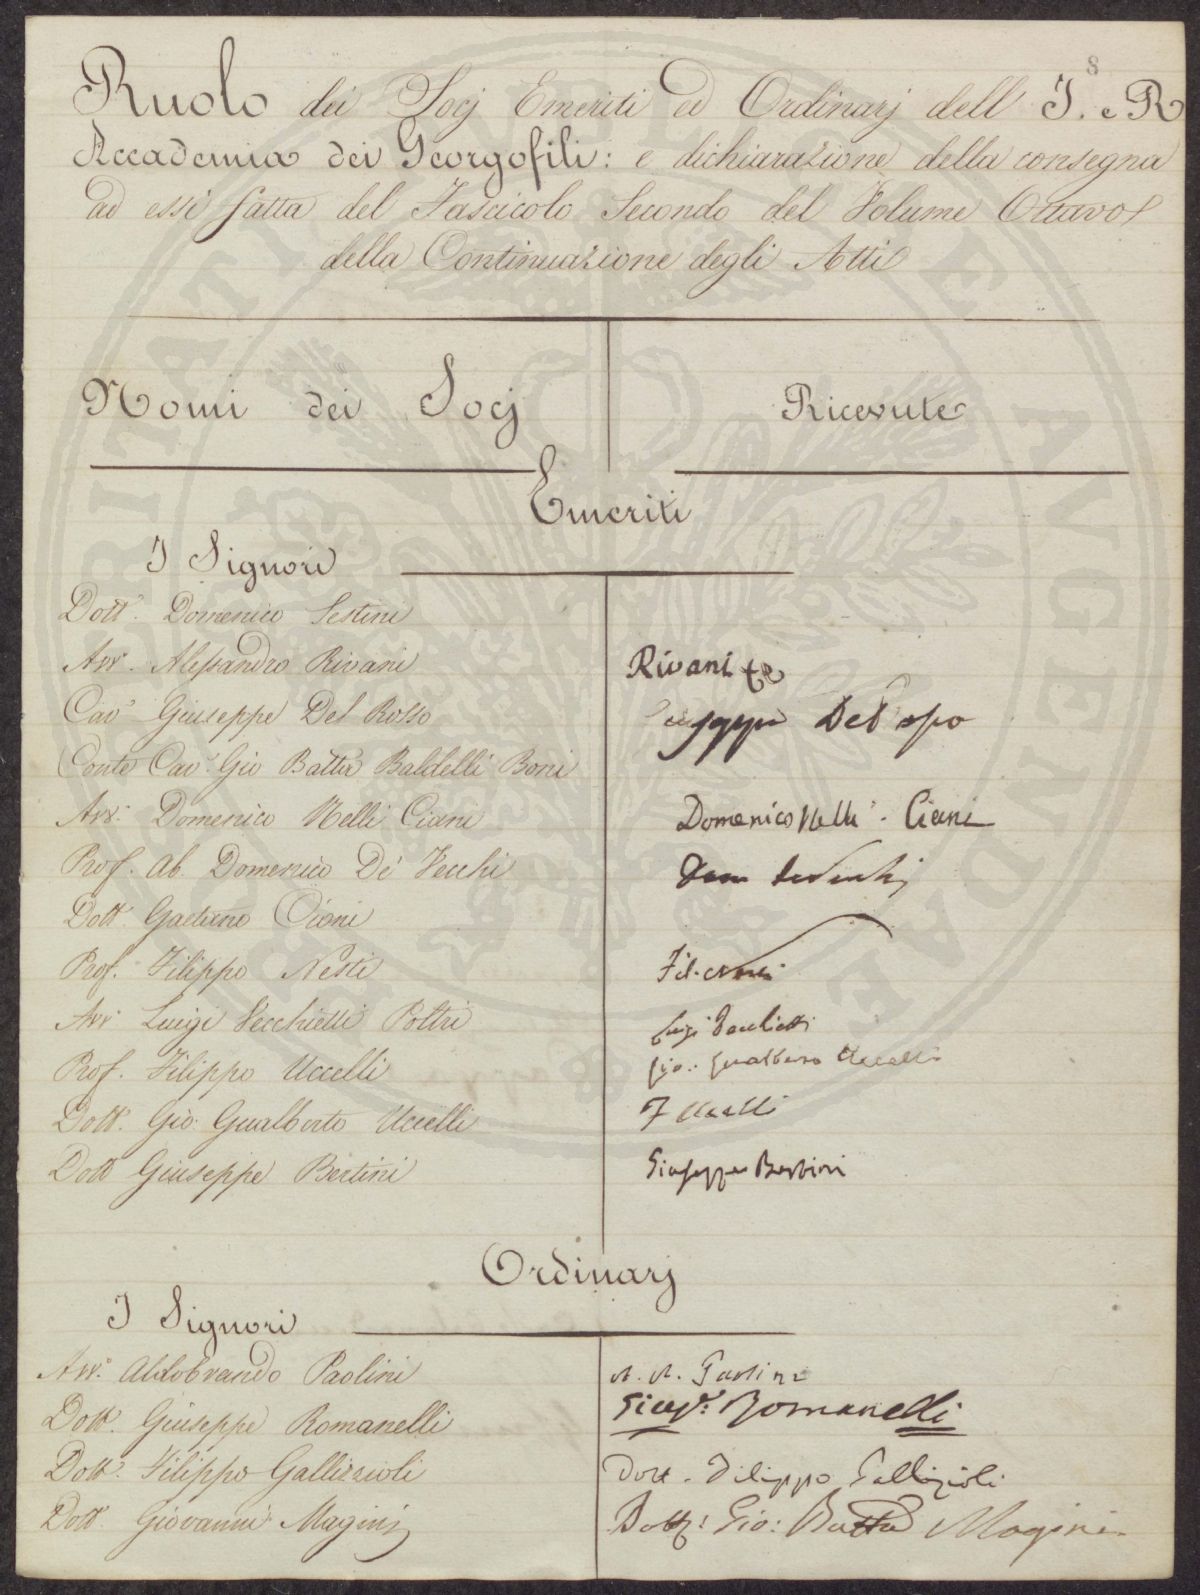 8
Ruolo dei Socj Emeriti ed Ordinarj dell' I. e R
Accademia dei Georgofili: e dichiarazione della consegna
ad essi fatta del Fascicolo Secondo del Volume Ottavo
della Continuazione degli Atti
Nomi dei Socj Ricevute
Emeriti
I Signori
Dott. Domenico Sestini
Avv. Alessandro Rivani Rivani
Cav. Giuseppe Del Rosso Giuseppe Del Rosso
Conte Cav. Gio Batta Baldelli Boni
Avv. Domenico Nelli Ciani Domenico Nelli Ciani
Prof. Ab. Domenico De' Vecchi Dom de Vecchi
Dott. Gaetano Cioni
Prof. Filippo Nesti
Avv. Luigi Vecchietti Poltri Luigi Vecchietti
Prof. Filippo Uccelli Gio: Gualberto Uccelli
Dott. Gio: Gualberto Uccelli F Uccelli
Dott. Giuseppe Bertini Giuseppe Bertini
Ordinarj
I Signori
Avv. Aldobrando Paolini A. A. Paolini
Dott. Giuseppe Romanelli Giusp.e Romanelli
Dott. Filippo Gallizzioli Dott. Filippo Gallizioli
Dott. Giovanni Magini Dott: Gio: Batta Magini